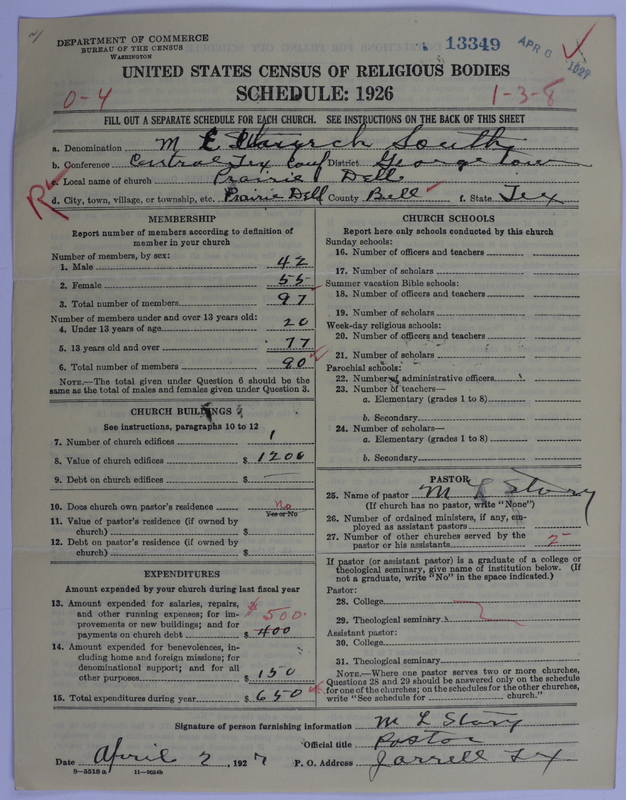 DEPARTMENT OF COMMERCE
BUREAU OF THE CENSUS
WASHINGTON
13349
APR 6 1927
UNITED STATES CENSUS OF RELIGIOUS BODIES
SCHEDULE: 1926
0-4
1-3-8
FILL OUT A SEPARATE SCHEDULE FOR EACH CHURCH. SEE INSTRUCTIONS ON THE BACK OF THIS SHEET
a. Denomination M E Church South
b. Conference Central Tex Conf District Georgetown
c. Local name of church Prairie Dell
d. City, town, village, or township, etc. Prairie Dell County Bell f. State Tex
MEMBERSHIP
Report number of members according to definition of member in your church
Number of members, by sex:
1. Male 42
2. Female 55
3. Total number of members 97
Number of members under and over 13 years old:
4. Under 13 years of age 20
5. 13 years old and over 77
6. Total number of members 90
NOTE.—The total given under Question 6 should be the same as the total of males and females given under Question 3.
CHURCH BUILDINGS
See instructions, paragraphs 10 to 12
7. Number of church edifices 1
8. Value of church edifices $ 1200
9. Debt on church edifices $ —
10. Does church own pastor's residence No
Yes or No
11. Value of pastor's residence (if owned by church) $
12. Debt on pastor's residence (if owned by church) $
EXPENDITURES
Amount expended by your church during last fiscal year
13. Amount expended for salaries, repairs, and other running expenses; for improvements or new buildings; and for payments on church debt $ 400
$ 500.
14. Amount expended for benevolences, including home and foreign missions; for denominational support; and for all other purposes $ 150
15. Total expenditures during year $ 650
CHURCH SCHOOLS
Report here only schools conducted by this church
Sunday schools:
16. Number of officers and teachers
17. Number of scholars
Summer vacation Bible schools:
18. Number of officers and teachers
19. Number of scholars
Week-day religious schools:
20. Number of officers and teachers
21. Number of scholars
Parochial schools:
22. Number of administrative officers
23. Number of teachers—
a. Elementary (grades 1 to 8)
b. Secondary
24. Number of scholars—
a. Elementary (grades 1 to 8)
b. Secondary
PASTOR
25. Name of pastor M L Story
(If church has no pastor, write "None")
26. Number of ordained ministers, if any, employed as assistant pastors
27. Number of other churches served by the pastor or his assistants 2
If pastor (or assistant pastor) is a graduate of a college or theological seminary, give name of institution below. (If not a graduate, write "No" in the space indicated.)
Pastor:
28. College
29. Theological seminary
Assistant pastor:
30. College
31. Theological seminary
NOTE.—Where one pastor serves two or more churches, Questions 28 and 29 should be answered only on the schedule for one of the churches; on the schedules for the other churches, write "See schedule for church."
Signature of person furnishing information M L Story
Official title Pastor
Date April 2, 1927 P. O. Address Jarrell Tex
9-5518a 11-9556b